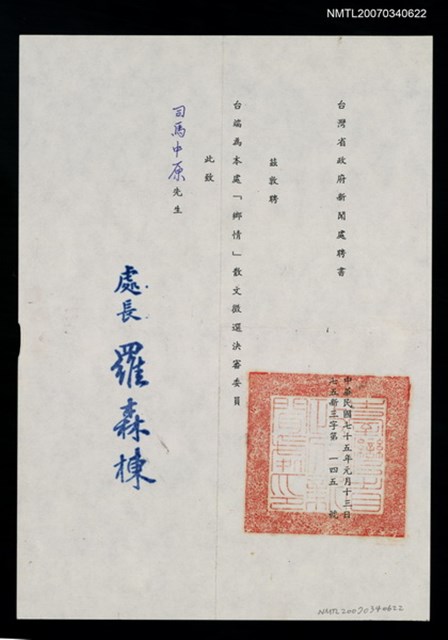 NMTL20070340622
台灣省政府新聞處聘書
中華民國七十五年元月十三日
七五新三字第 一四五 號
茲敦聘
台端為本處「鄉情」散文徵選決審委員
此致
司馬中原先生
處長 羅森棟
NMTL20070340622